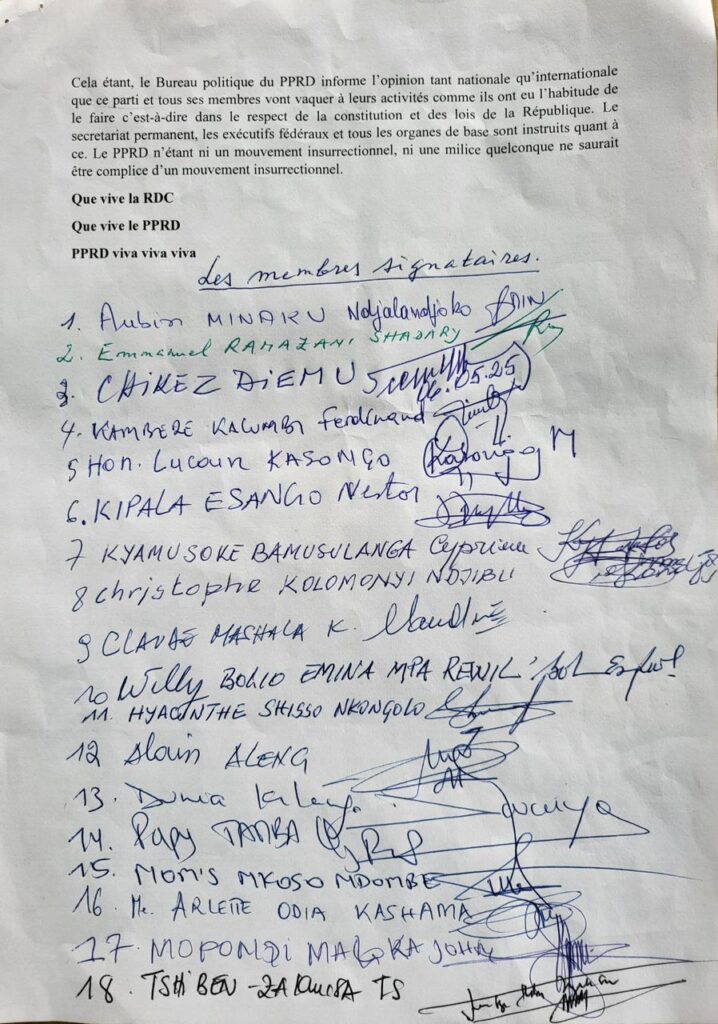 Cela étant, le Bureau politique du PPRD informe l'opinion tant nationale qu'internationale
que ce parti et tous ses membres vont vaquer à leurs activités comme ils ont eu l'habitude de
le faire c'est-à-dire dans le respect de la constitution et des lois de la République. Le
secretariat permanent, les exécutifs fédéraux et tous les organes de base sont instruits quant à
ce. Le PPRD n'étant ni un mouvement insurrectionnel, ni une milice quelconque ne saurait
être complice d'un mouvement insurrectionnel.
Que vive la RDC
Que vive le PPRD
PPRD viva viva viva
Les membres signataires.
1. Aubin MINAKU Ndjalandjoko
2. Emmanuel RAMAZANI SHADARY
3. CHIKEZ DIEMU
06.05.25
4. KAMBERE KALUMBI Ferdinand
5 Hon. Lucain KASONGO
6. KIPALA ESANGO Nestor
7 KYAMUSOKE BAMUSULANGA Cyprienne
8 Christophe KOLOMONYI NDJIBU
9 CLAUDE MASHALA K.
10 Willy BOLIO EMINA MPA REWIL'
11. HYACINTHE SHISSO NKONGOLO
12 Alain ALENG
13. Dunia
14. Papy TAMBA
15. MOM'S NKOSO NDOMBE
16 Me. ARLETTE ODIA KASHAMA
17. MOPONDI MALOKA JOHN
18. TSHIBEN